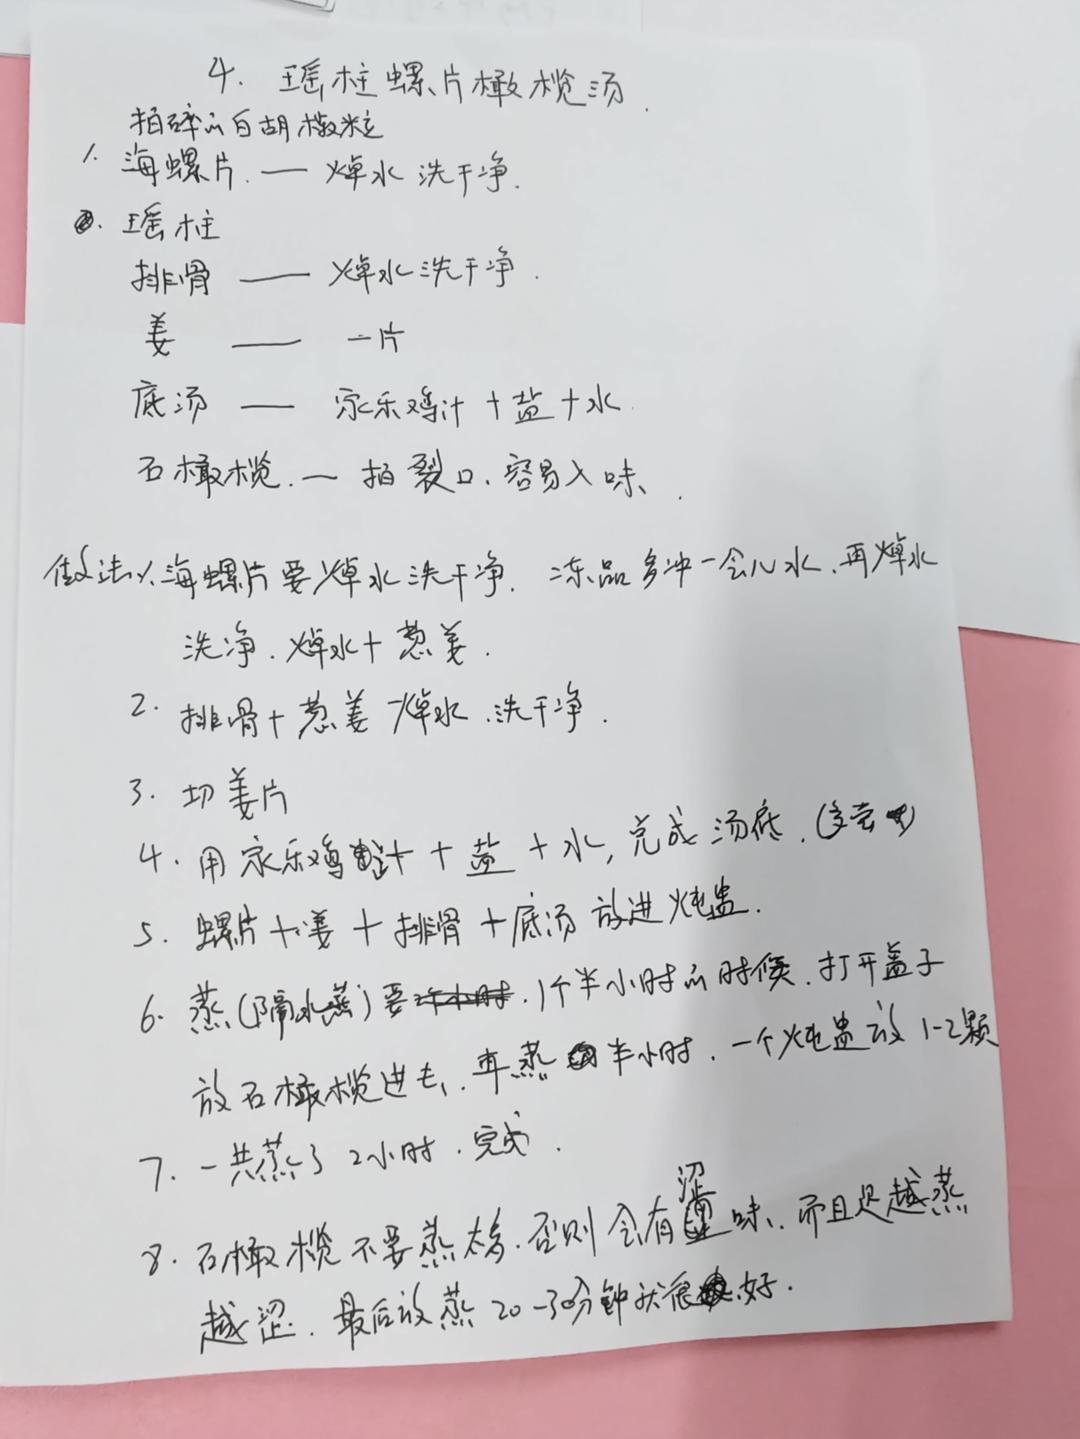 4. 瑶柱螺片橄榄汤.
拍碎的白胡椒粒
1. 海螺片. — 焯水 洗干净.
瑶柱
排骨 — 焯水洗干净.
姜 — 一片
底汤 — 家乐鸡汁+盐+水
石橄榄. — 拍裂口、容易入味.
做法1、海螺片要焯水洗干净. 冻品多冲一会儿水.再焯水
洗净.焯水+葱姜.
2. 排骨+葱姜 焯水.洗干净.
3. 切姜片
4. 用家乐鸡汁+盐+水,完成汤底.
5. 螺片+姜+排骨+底汤 放进炖盅.
6. 蒸(隔水蒸)要 1个半小时的时候.打开盖子
放石橄榄进去,再蒸半小时.一个炖盅放1-2颗
7. 一共蒸了2小时.完成.
8. 石橄榄不要蒸太多.否则会有涩味.而且是越蒸
越涩.最后放蒸20-30分钟就很好.